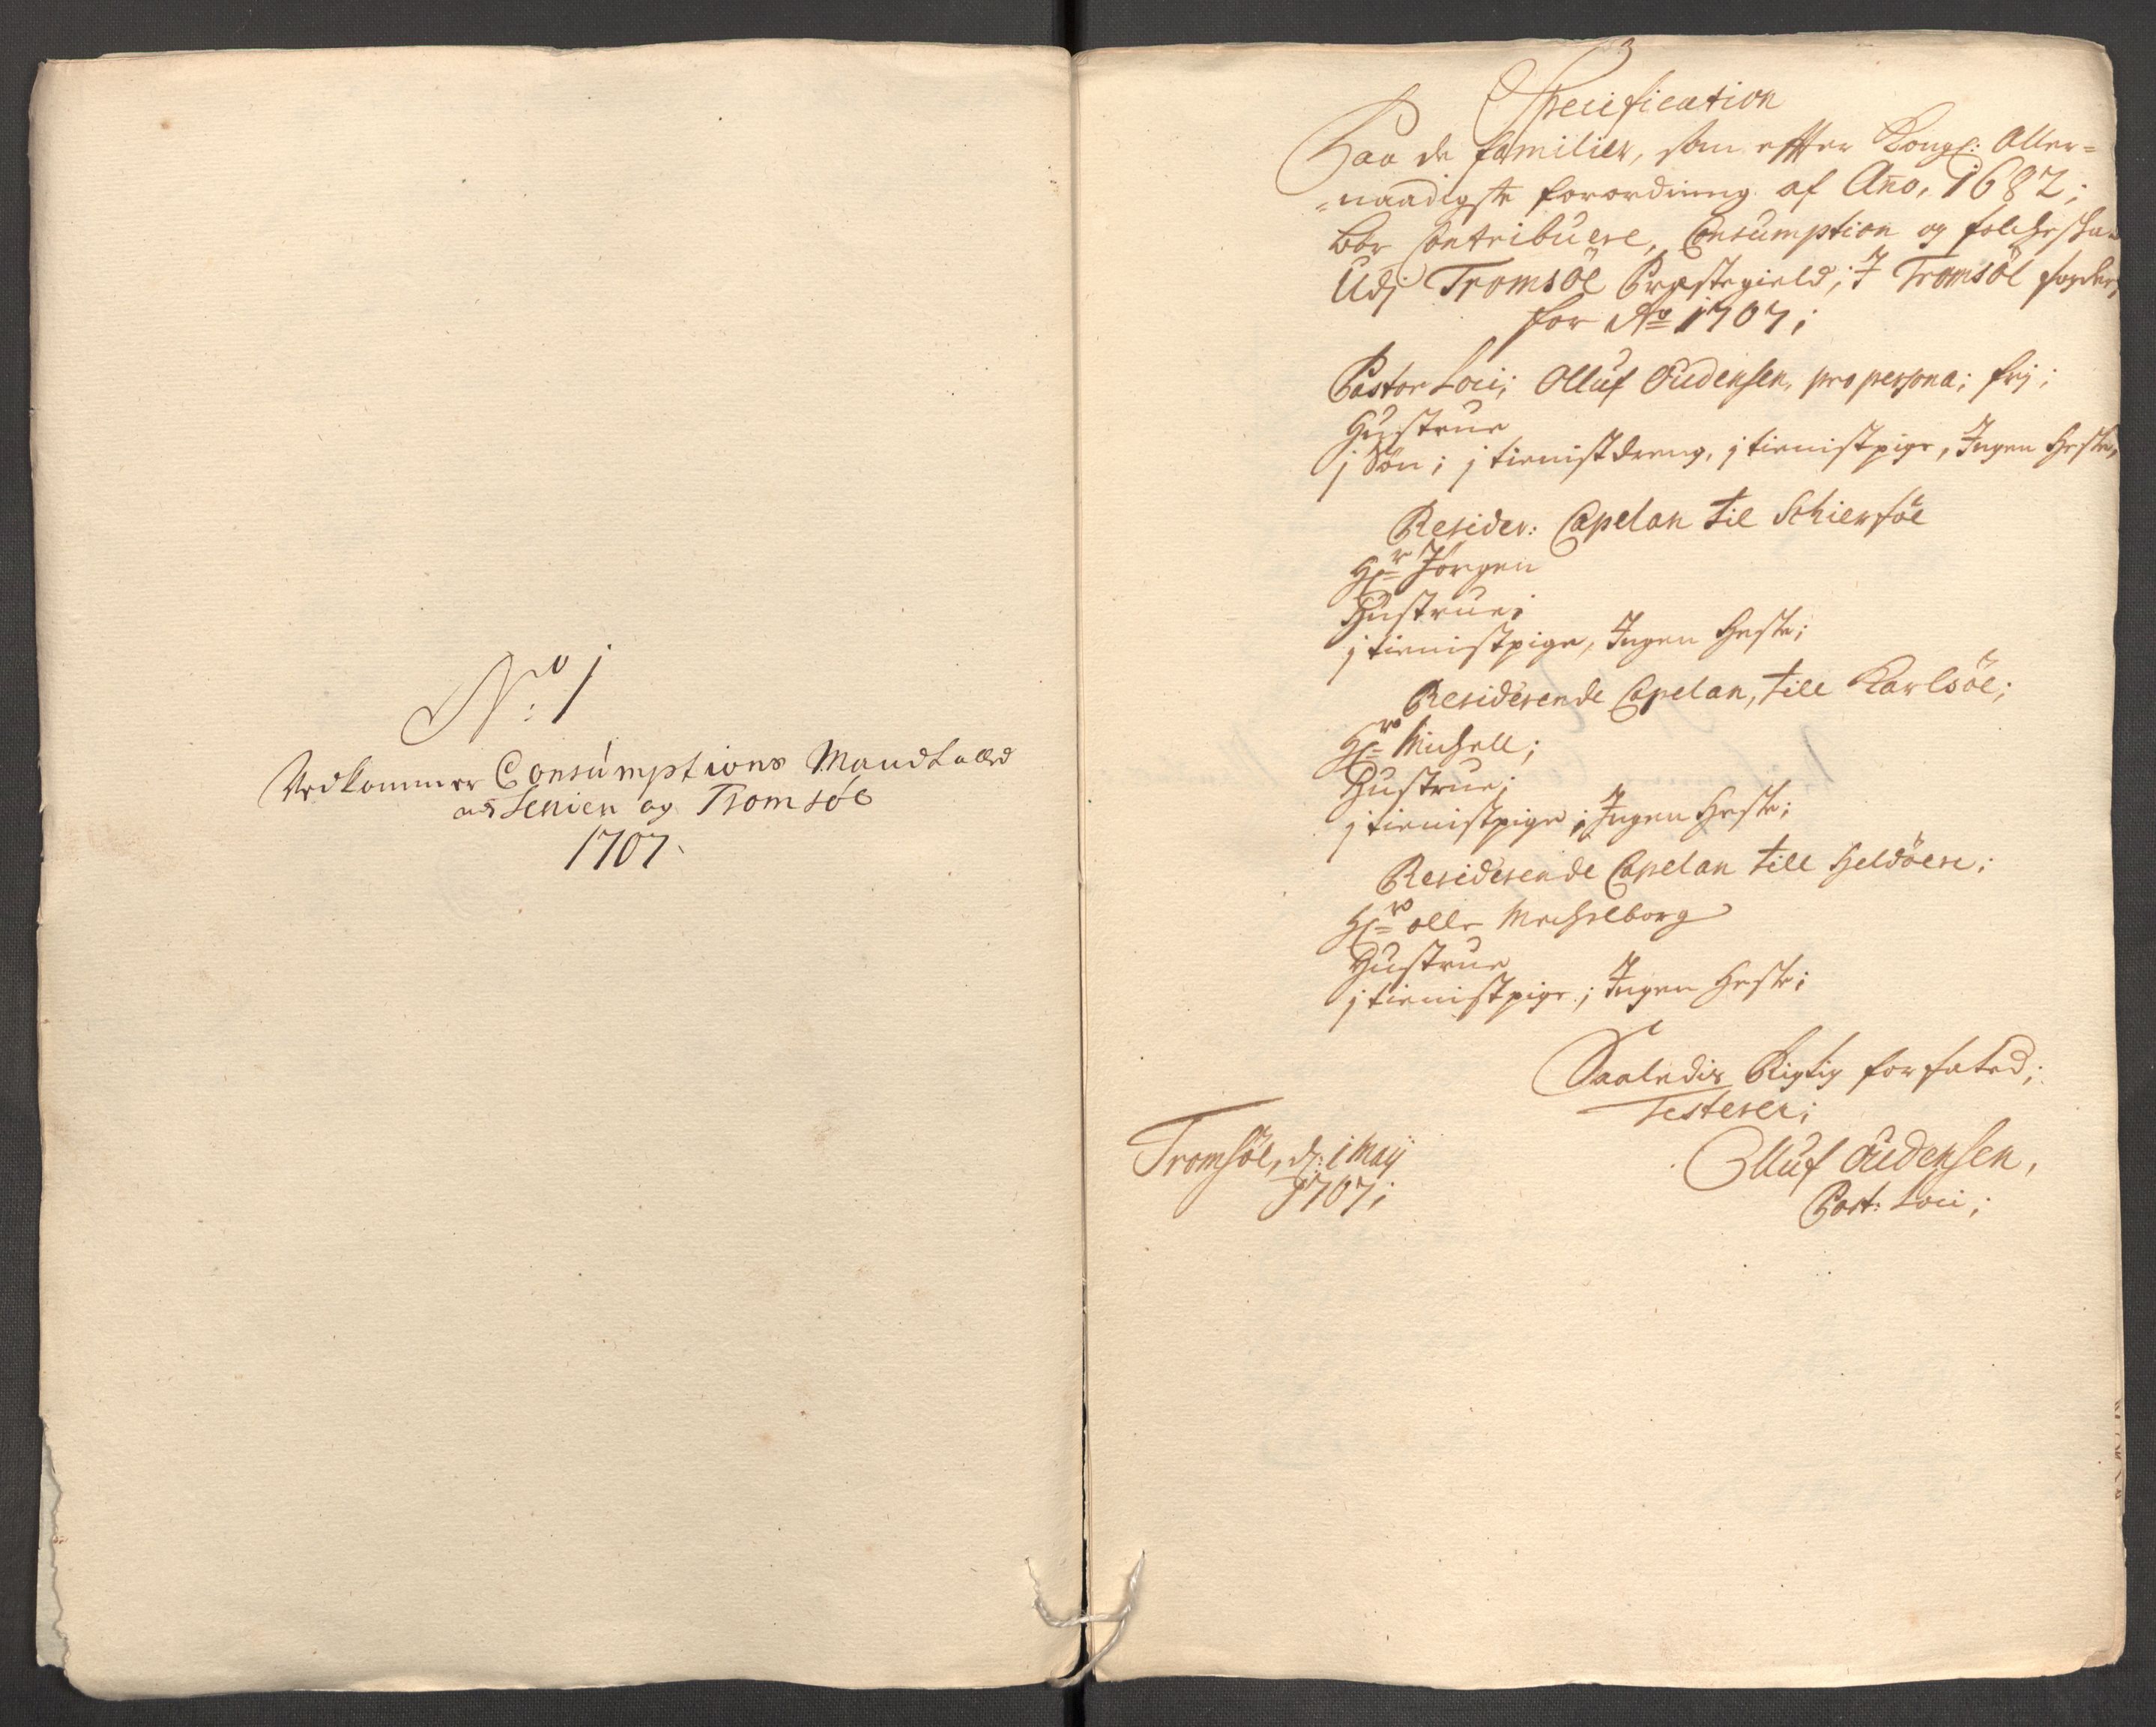 No: 1
Vedkommer Consumptions Mandtalled
af Senien og Tromsøe
1707.
Specification
Paa de familier, som effter Kongl: Aller=
=naadigste forordning af Año, 1682;
bør Contribuere, Consumption og folcheskat
Udj Tromsöe Præstegield; J Tromsöe fogderj
for Ao 1707;
Pastor Loci; Olluf Oudensen, pro persona; frj;
Hustrue
j Søn; j tienistdreng, j tienistpige, Ingen Heste,
Resider: Capelan til Schiersöe
Hr Jørgen
Hustrue;
j tienistpige, Ingen Heste;
Residerende Capelan, till Karlsöe;
Hr Michell;
Hustrue;
j tienistpige; Ingen Heste;
Residerende Capelan till Heldöere;
Hr olle Mechelborg
Hustrue
j tienistpige; Ingen Heste;
Saaledis Rigtig forfated;
Testerer;
Tromsöe, d: 1 Maij
1707;
Olluf Oudensen,
Past: Loci;